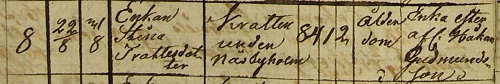 8 22/8 31/8 Enkan Stina Trattesdotter Kratten under Näsbyholm 84 12 Ålderdom Enka efter aff. Håkan Gudmundsson